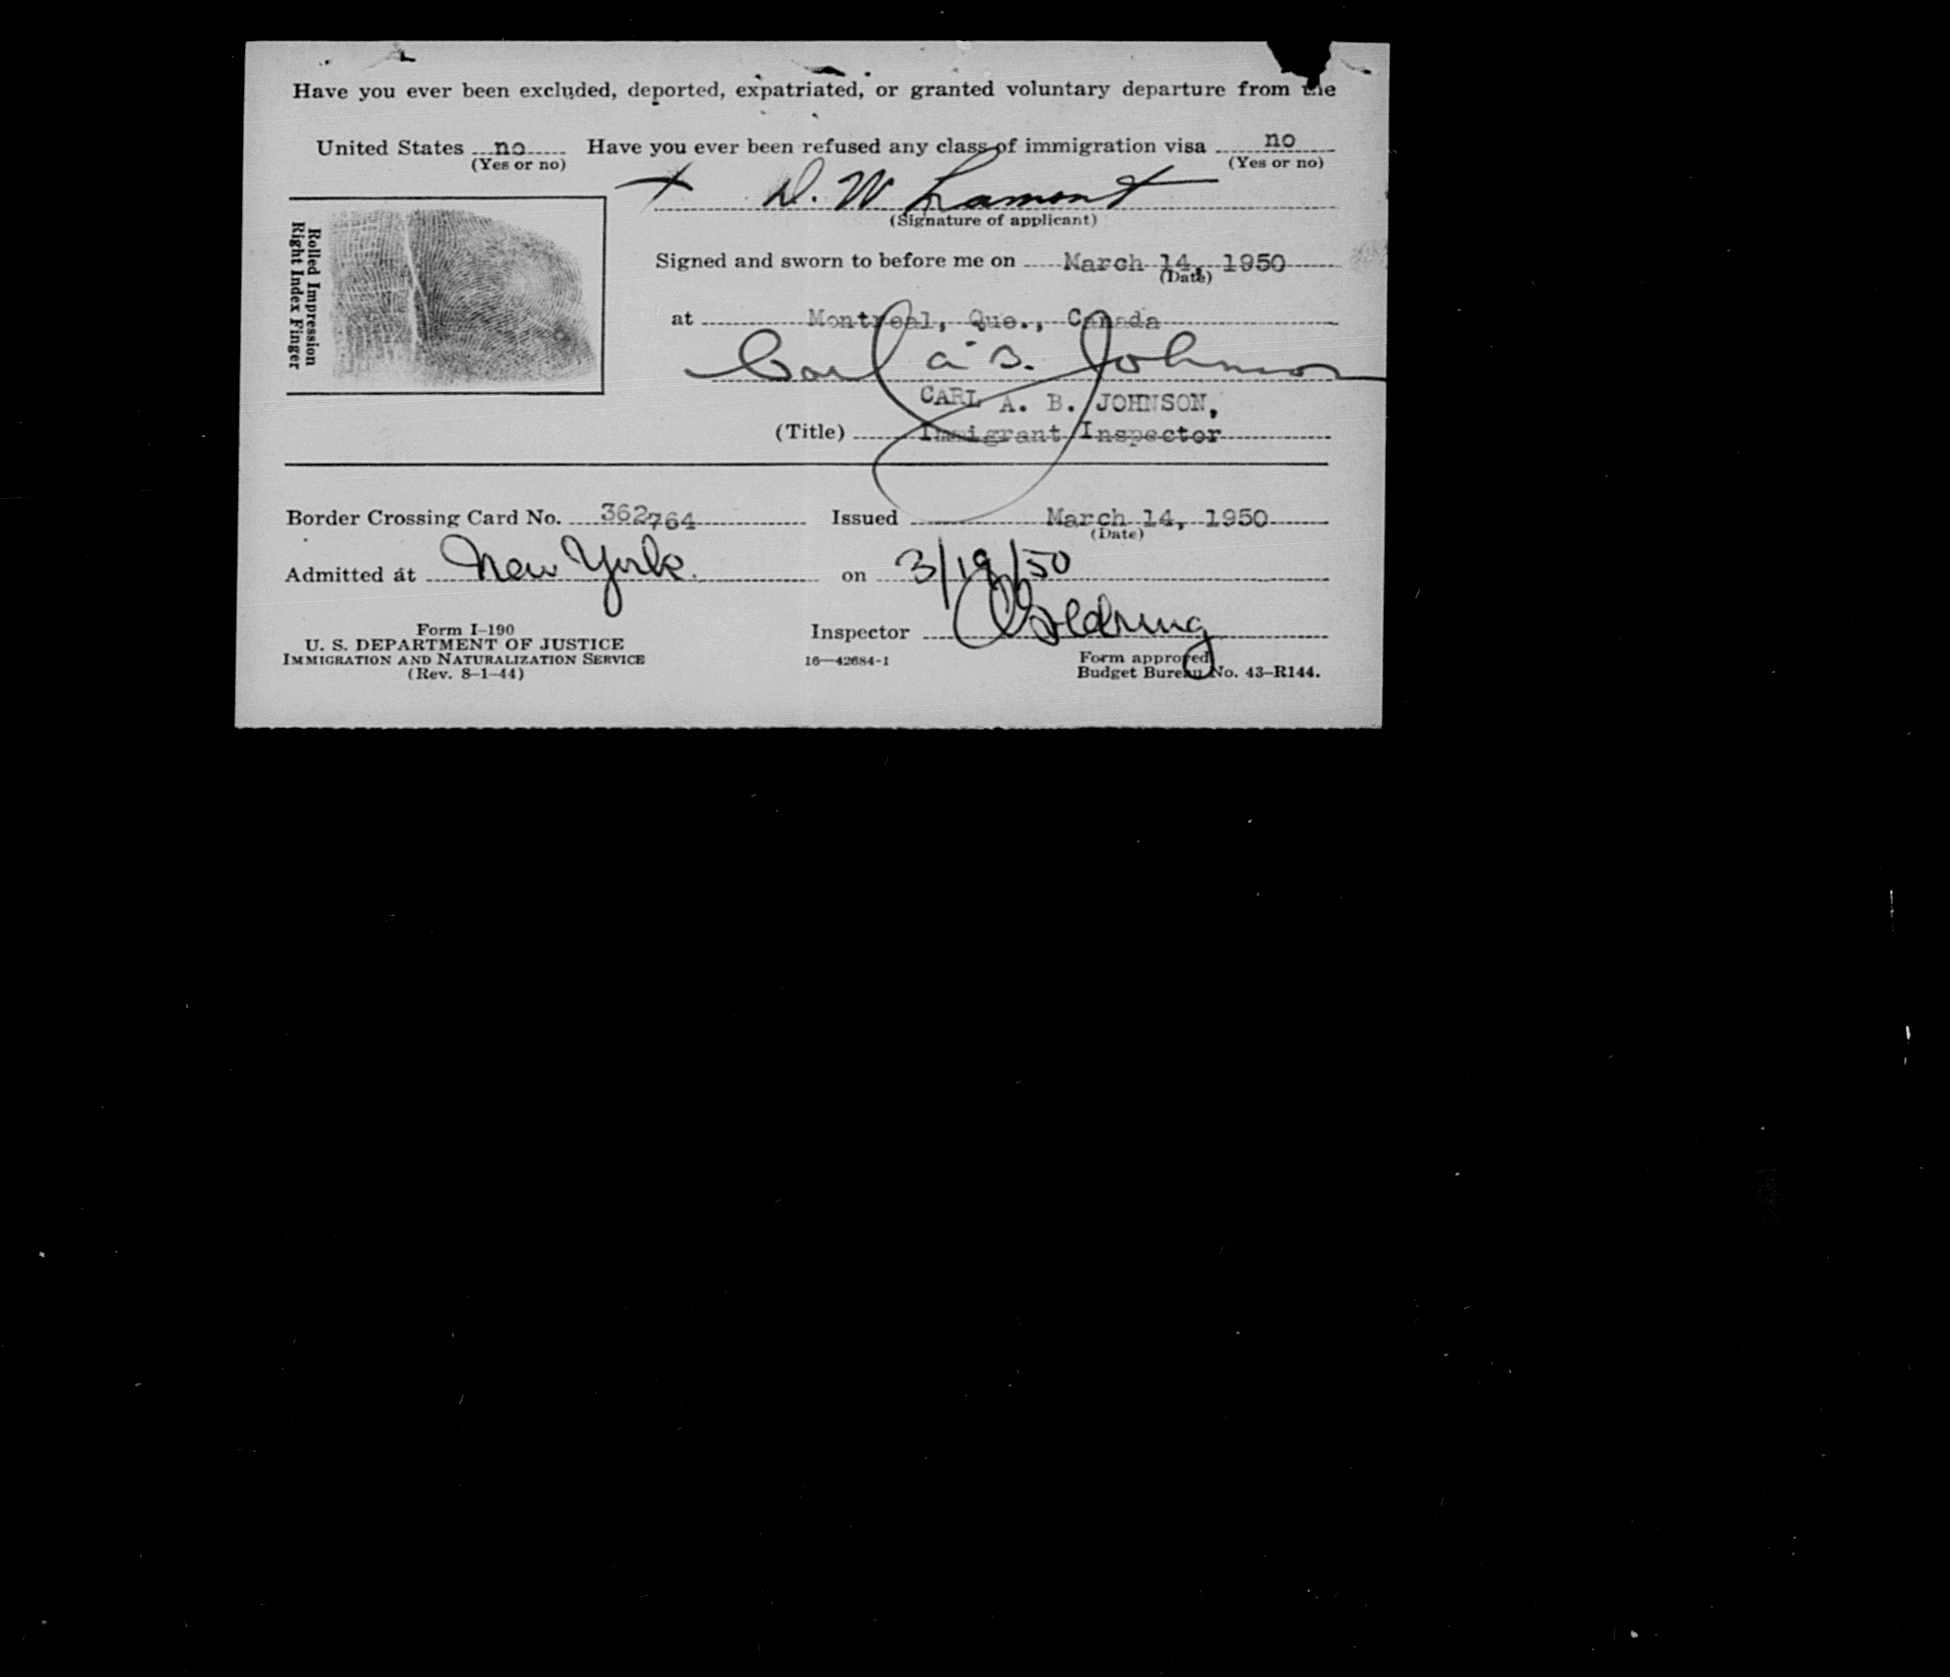 Have you ever been excluded, deported, expatriated, or granted voluntary departure from the
United States no Have you ever been refused any class of immigration visa no
(Yes or no) (Yes or no)
D. W Lamont
(Signature of applicant)
Rolled Impression
Right Index Finger
Signed and sworn to before me on March 14, 1950
(Date)
at Montreal, Que., Canada
Carl A. B. Johnson
CARL A. B. JOHNSON,
(Title) Immigrant Inspector
Border Crossing Card No. 362764 Issued March 14, 1950
(Date)
Admitted at New York. on 3/19/50
Inspector
Form I-190
U. S. DEPARTMENT OF JUSTICE
IMMIGRATION AND NATURALIZATION SERVICE
(Rev. 8-1-44)
16—42684-1
Form approved
Budget Bureau No. 43-R144.